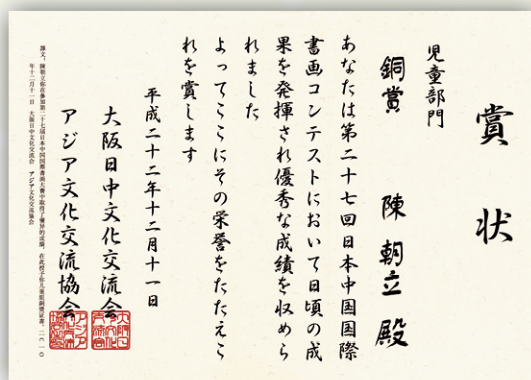 賞状
児童部門
銅賞 陳朝立殿
あなたは第二十七回日本中国国際
書画コンテストにおいて日頃の成
果を発揮され優秀な成績を収めら
れました
よってここにその栄誉をたたえこ
れを賞します
平成二十二年十二月十一日
大阪日中文化交流会
アジア文化交流協会